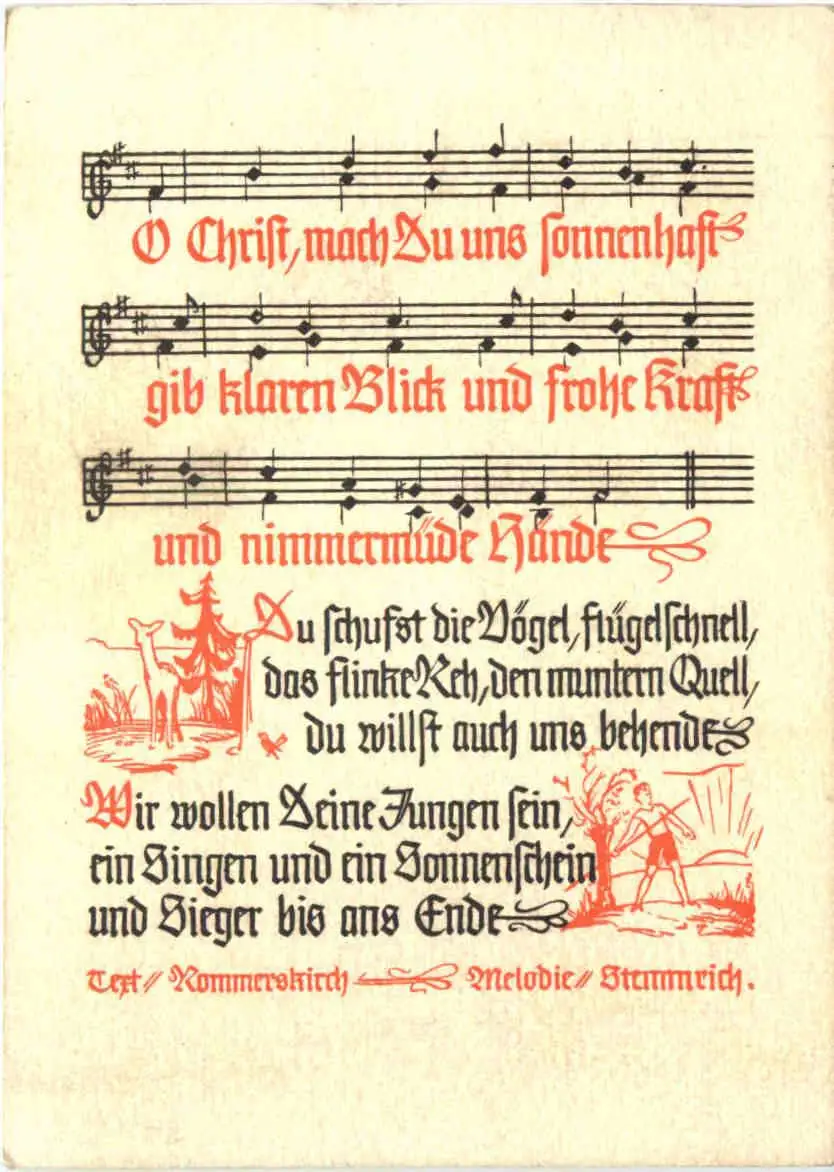 O Christ, mach Du uns sonnenhaft
gib klaren Blick und frohe Kraft
und nimmermüde Hände
Du schufst die Vögel, flügelschnell,
das flinke Reh, den muntern Quell,
du willst auch uns behende
Wir wollen Deine Jungen sein,
ein Singen und ein Sonnenschein
und Sieger bis ans Ende
Text // Rommerskirch Melodie // Stemmrich.